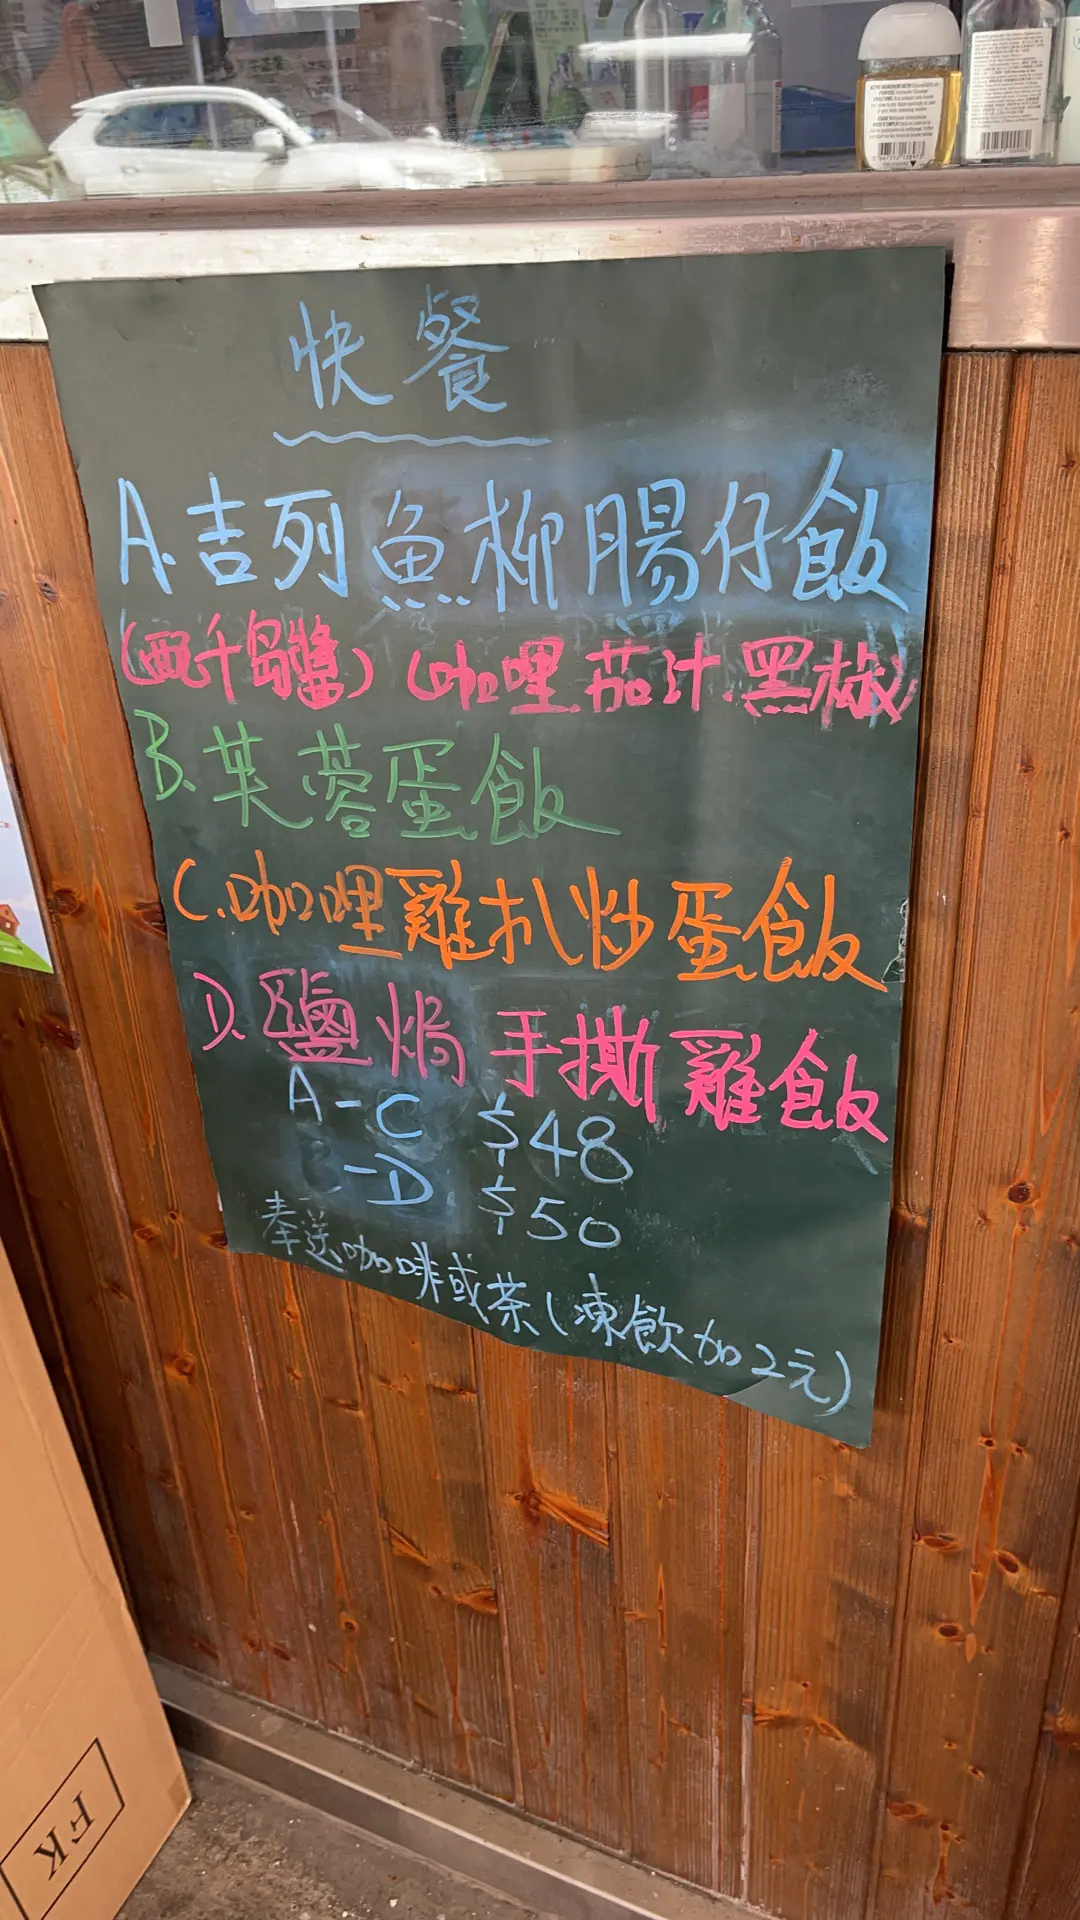 快餐
A.吉列魚柳腸仔飯
(配千島醬)(咖哩.茄汁.黑椒)
B.芙蓉蛋飯
C.咖哩雞扒炒蛋飯
D.鹽焗手撕雞飯
A-C $48
-D $50
奉送咖啡或茶(凍飲加2元)
FK